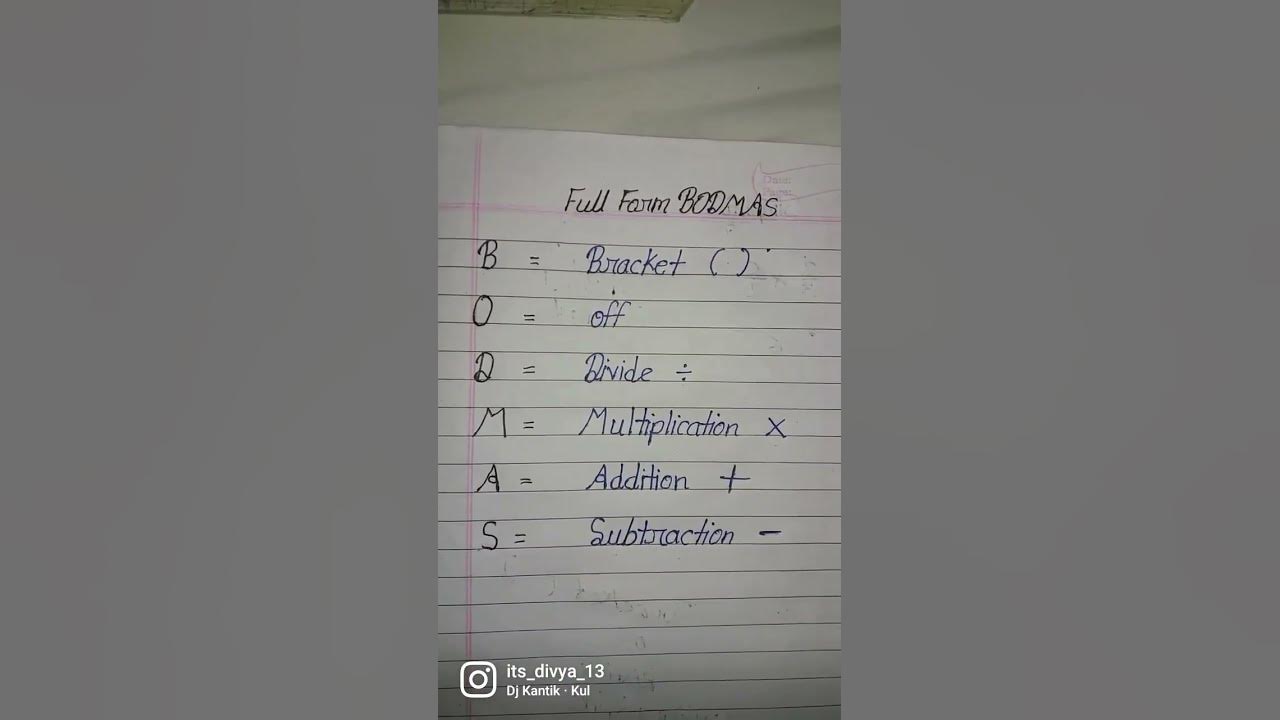 Date:
Page:
Full Form BODMAS
B = Bracket ( )
O = off
D = Divide ÷
M = Multiplication ×
A = Addition +
S = Subtraction −
its_divya_13
Dj Kantik · Kul